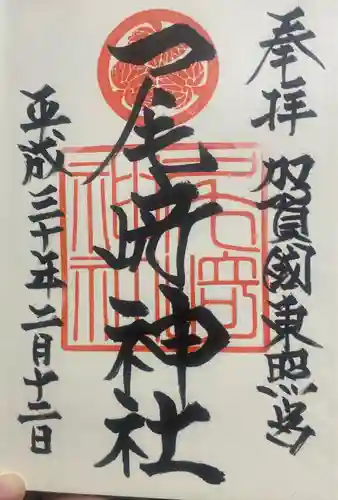 奉拝
加賀國東照宮
尾崎神社
平成三十年二月十二日
尾崎
神社